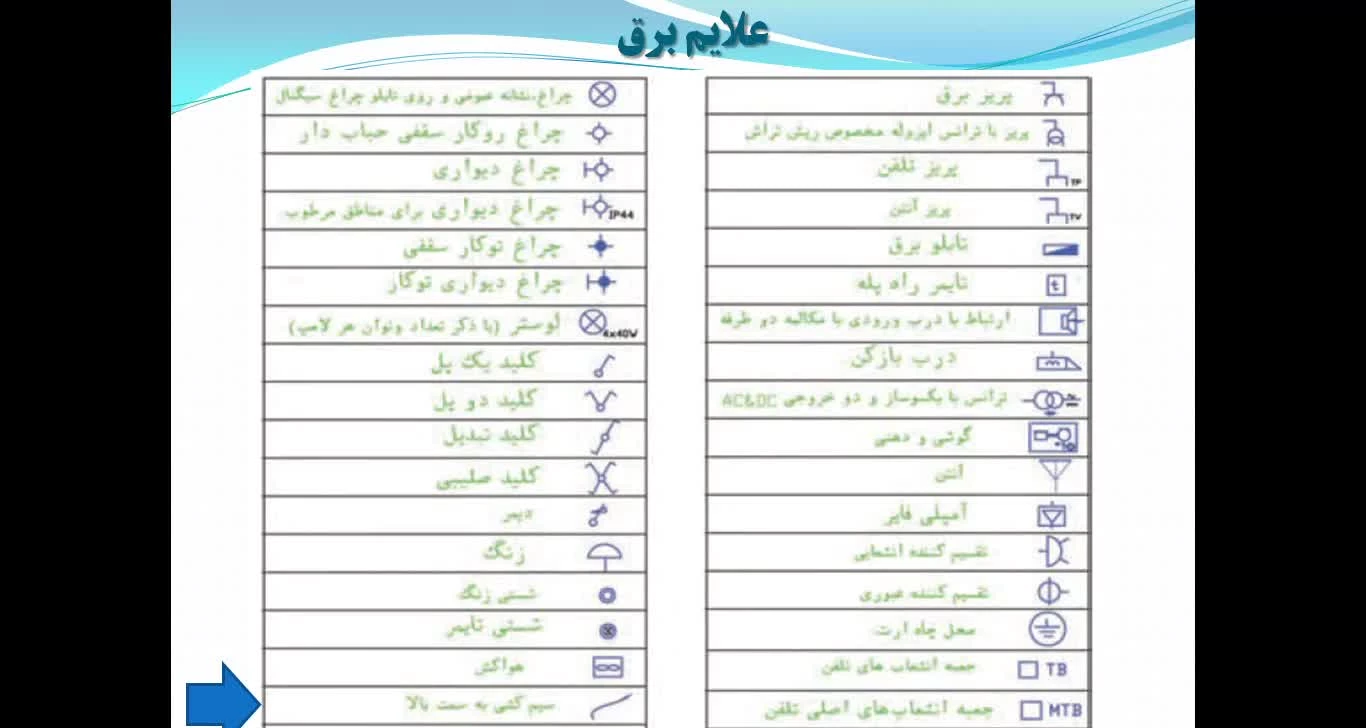 علایم برق
پریز برق
پریز با ترانس ایزوله مخصوص ریش تراش
پریز تلفن TP
پریز آنتن TV
تابلو برق
تایمر راه پله t
ارتباط با درب ورودی با مکالمه دو طرفه
درب بازکن
ترانس با یکسوساز و دو خروجی AC&DC
گوشی و دهنی
آنتن
آمپلی فایر
تقسیم کننده انتهایی
تقسیم کننده عبوری
محل چاه ارت
جعبه انشعاب های تلفن TB
جعبه انشعاب‌های اصلی تلفن MTB
چراغ،نشانه عمومی و روی تابلو چراغ سیگنال
چراغ روکار سقفی حباب دار
چراغ دیواری
چراغ دیواری برای مناطق مرطوب IP44
چراغ توکار سقفی
چراغ دیواری توکار
لوستر (با ذکر تعداد وتوان هر لامپ) 4x40W
کلید یک پل
کلید دو پل
کلید تبدیل
کلید صلیبی
دیمر
زنگ
شستی زنگ
شستی تایمر
هواکش
سیم کشی به سمت بالا